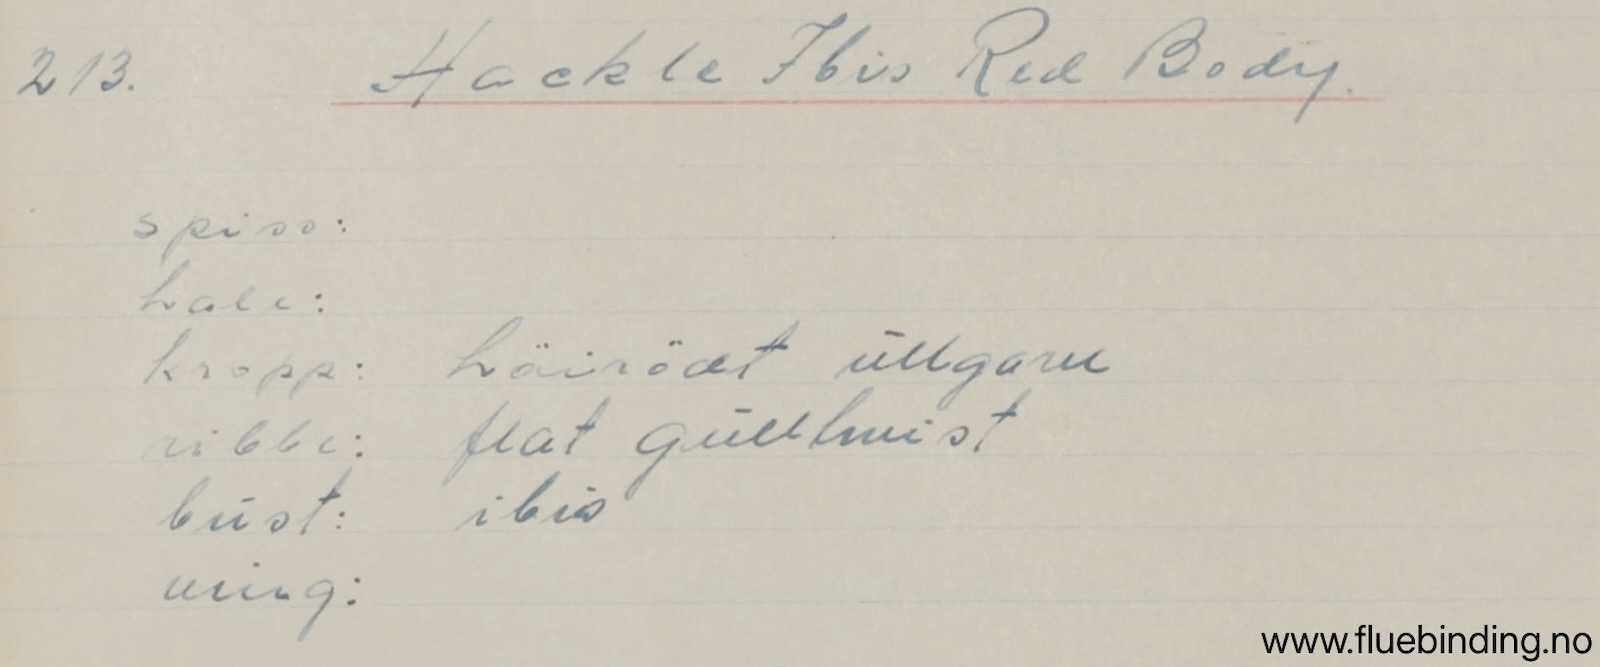 213. Hackle Ibis Red Body.
spiss:
hale:
kropp: höirödt ullgarn
ribbe: flat gulltwist
bust: ibis
ving:
www.fluebinding.no